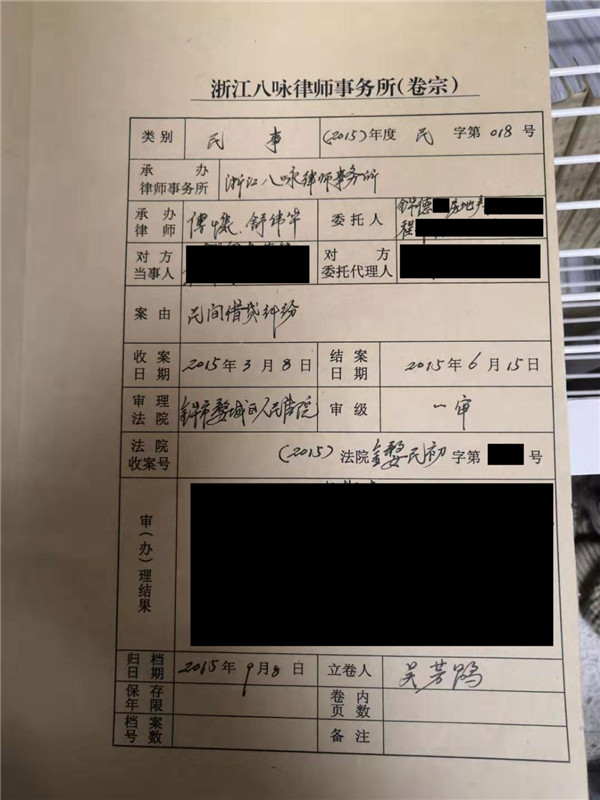 浙江八咏律师事务所（卷宗）
类别 民事 （2015）年度 民 字第 018 号
承办律师事务所 浙江八咏律师事务所
承办律师 舒伟华 委托人
程
对方当事人 对方委托代理人
案由 民间借贷纠纷
收案日期 2015年3月8日 结案日期 2015年6月15日
审理法院 金华市婺城区人民法院 审级 一审
法院收案号 （2015）法院 金婺民初 字第 号
审（办）理结果
归档日期 2015年9月8日 立卷人 吴芳鸣
保存年限 卷内页数
档案号数 备注